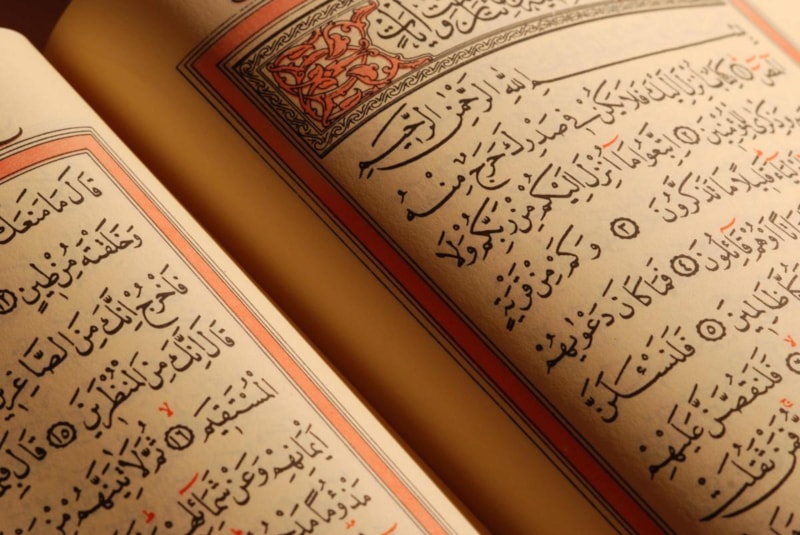 بِسْمِ اللهِ الرَّحْمٰنِ الرَّحِيمِ
الٓمٓصٓ ﴿١﴾ كِتَابٌ اُنْزِلَ اِلَيْكَ فَلَا يَكُنْ فِي صَدْرِكَ حَرَجٌ مِنْهُ
وَذِكْرٰى لِلْمُؤْمِنِينَ ﴿٢﴾ اِتَّبِعُوا مَٓا اُنْزِلَ اِلَيْكُمْ مِنْ رَبِّكُمْ وَلَا
قَلِيلًا مَا تَذَكَّرُونَ ﴿٣﴾ وَكَمْ مِنْ قَرْيَةٍ
اَوْ هُمْ قَٓائِلُونَ ﴿٤﴾ فَمَا كَانَ دَعْوٰيهُمْ
ظَالِمِينَ ﴿٥﴾ فَلَنَسْـَٔلَنَّ
فَلَنَقُصَّنَّ عَلَيْهِمْ
فَمَنْ ثَقُلَتْ
قَالَ مَا مَنَعَكَ
وَخَلَقْتَهُ مِنْ طِينٍ ﴿١٢﴾
فَاخْرُجْ اِنَّكَ مِنَ الصَّاغِرِينَ
قَالَ اِنَّكَ مِنَ الْمُنْظَرِينَ ﴿١٥﴾ قَالَ
الْمُسْتَقِيمَ ﴿١٦﴾ ثُمَّ لَاٰتِيَنَّهُمْ مِنْ
اَيْمَانِهِمْ وَعَنْ شَمَٓائِلِهِمْ
مَذْؤُمًا